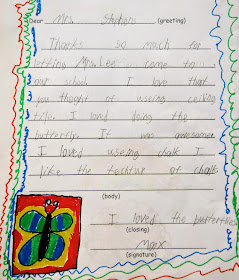 Dear Mrs. Stephens (greeting)
Thanks so much for
letting Mrs. Lee come to
our school I love that
you thought of useing ceiling
tile. I loved doing the
butterflie. It was awesome
I loved useing chalk I
like the techture of chalk.
(body)
I loved the butterflies
(closing)
Max
(signature)